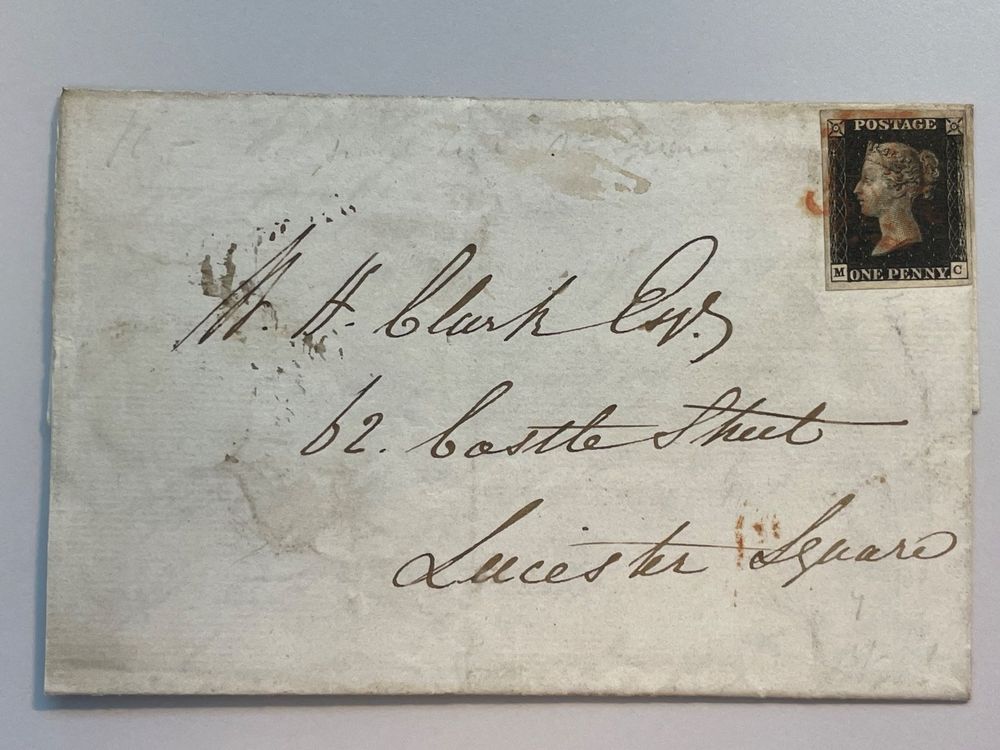 POSTAGE
M C
ONE PENNY.
W. H. Clark Esqr.
62. Castle Street
Leicester Square